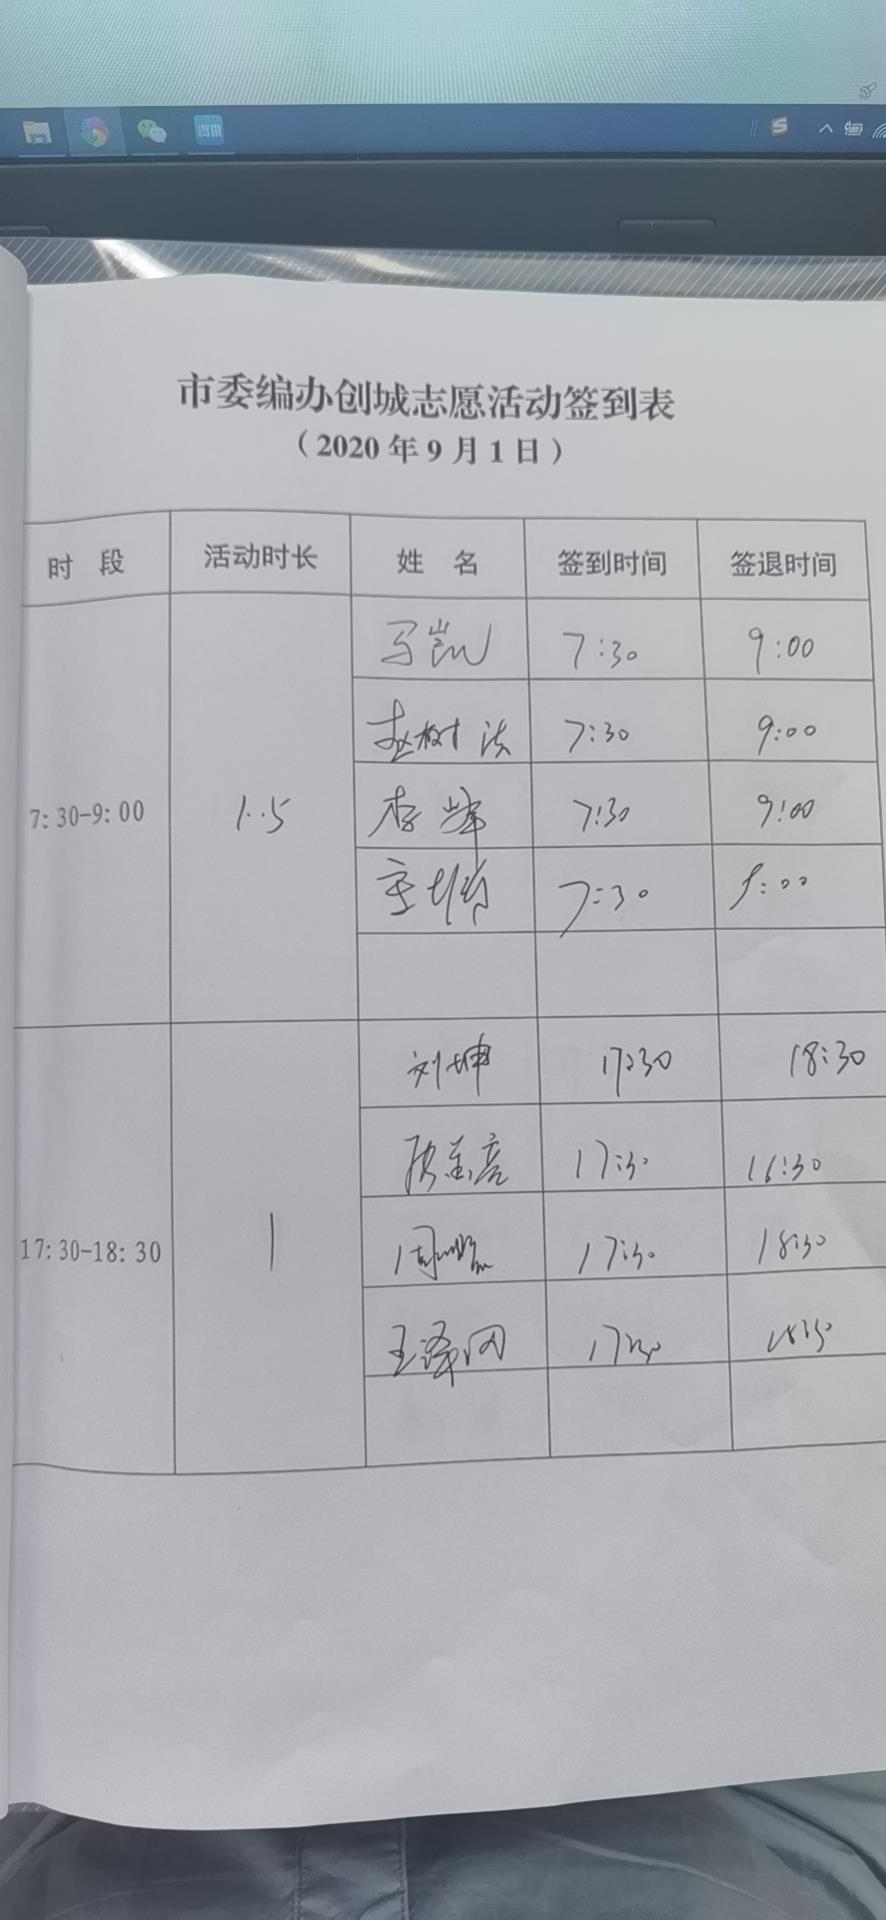 资讯
市委编办创城志愿活动签到表
（2020年9月1日）
时 段 活动时长 姓 名 签到时间 签退时间
马凯 7:30 9:00
赵树法 7:30 9:00
7:30-9:00 1.5 李峰 7:30 9:00
7:30
刘坤 17:30 18:30
17:30 16:30
17:30-18:30 1 17:30 18:30
王泽网 17:30 18:30